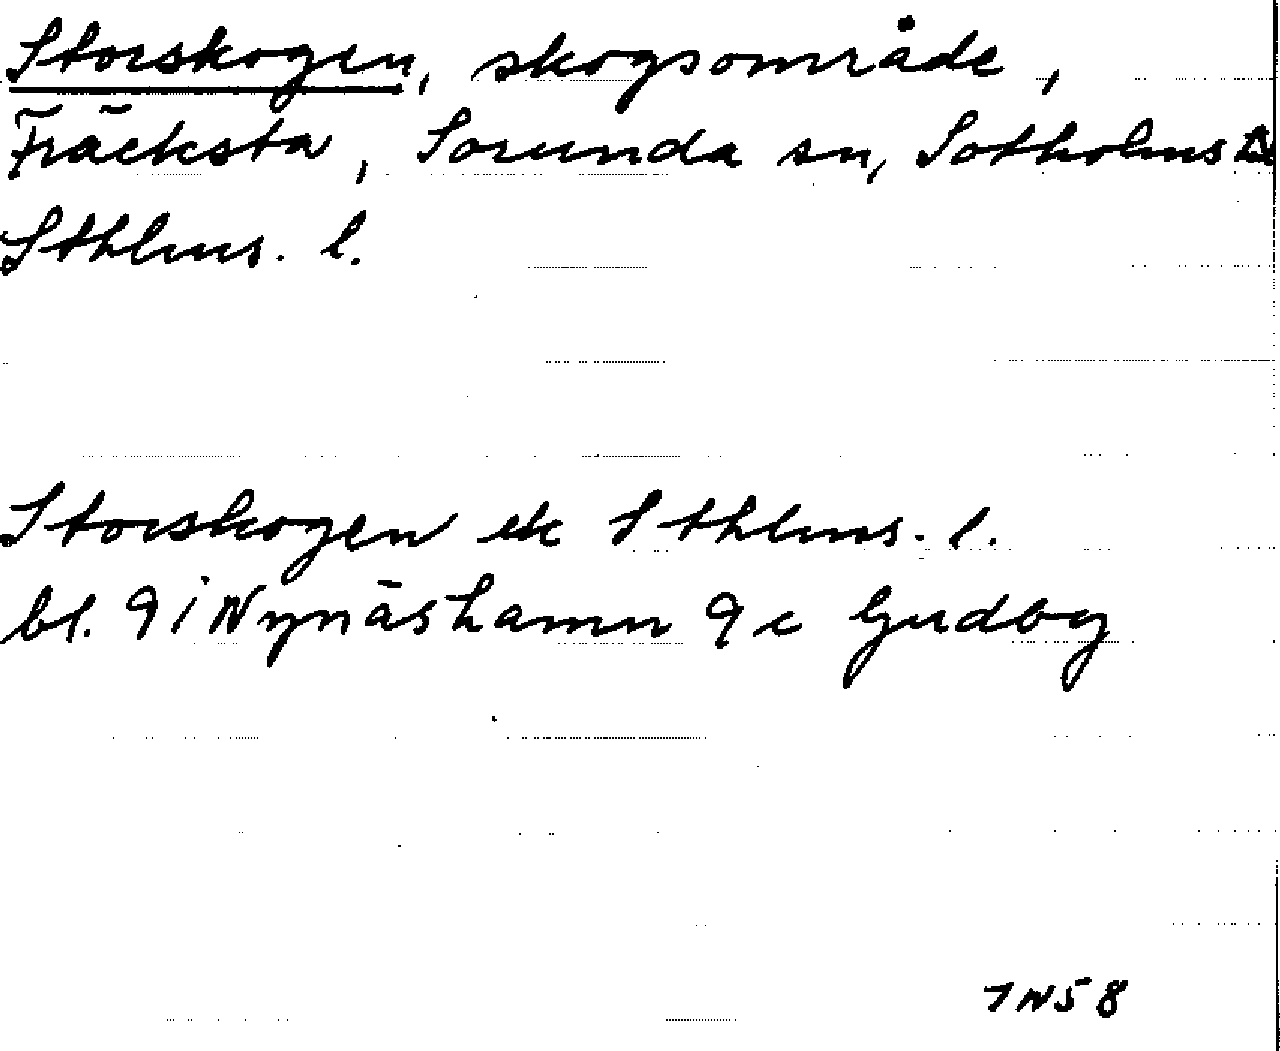 Storskogen, skogsområde,
Fräcksta, Sorunda sn, Sotholms
Sthlms. l.
Storskogen ek Sthlms. l.
bl. 9 i Nynäshamn 9 c Gudby